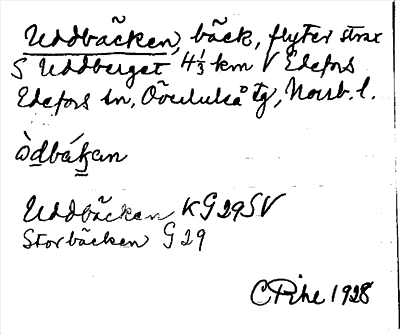 Uddbäcken, bäck, flyter strax
S Uddberget 4 1/3 km V Edefors
Edefors sn, Överluleå tg, Norrb. l.
òdbák̳an
Uddbäcken KG29SV
Storbäcken G29
C Pihe 1928